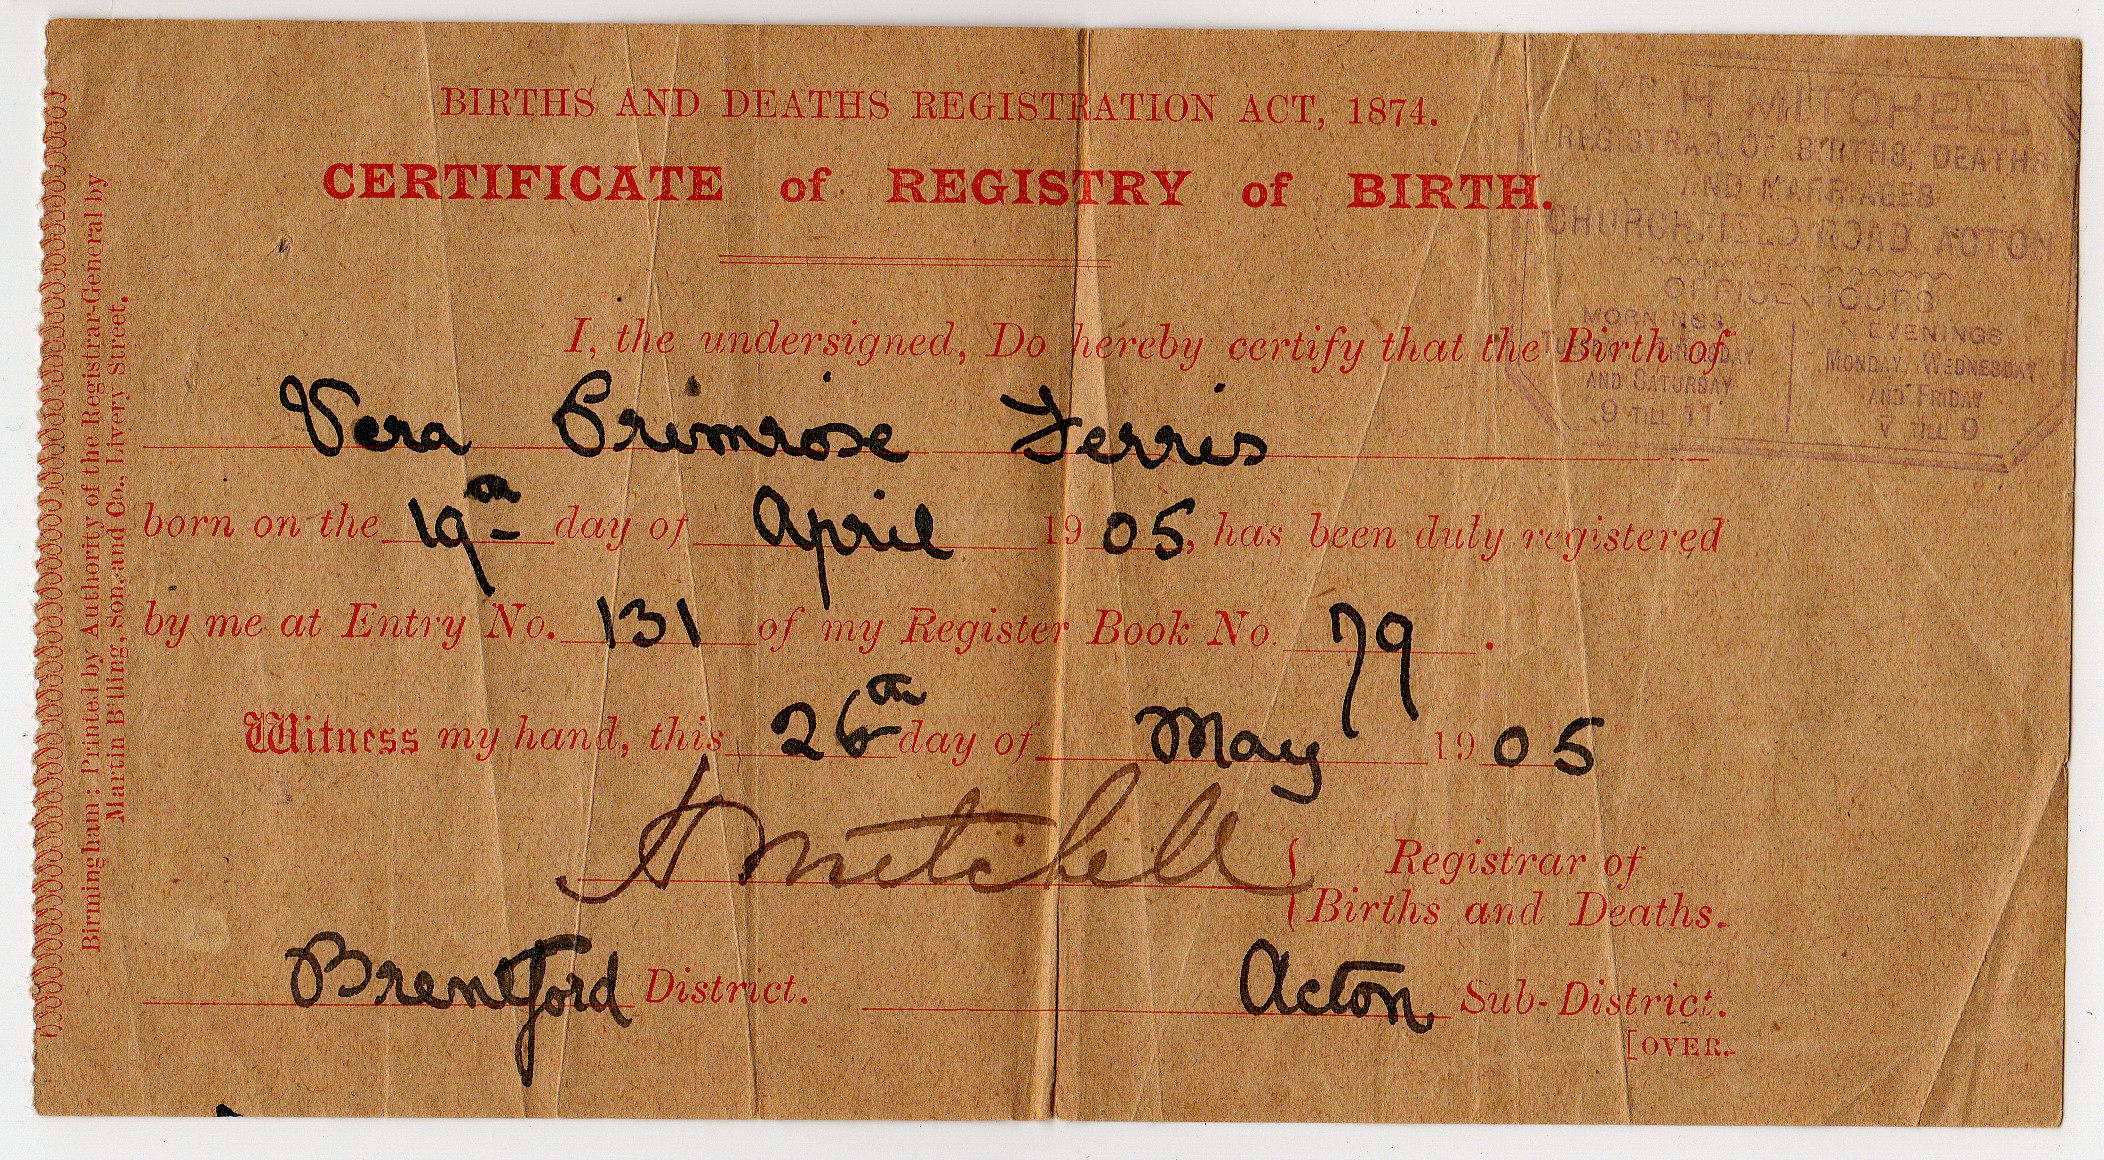 BIRTHS AND DEATHS REGISTRATION ACT, 1874.
CERTIFICATE of REGISTRY of BIRTH.
MR H MITCHELL
REGISTRAR OF BIRTHS, DEATHS
AND MARRIAGES
CHURCHFIELD ROAD, ACTON
OFFICE HOURS
MORNINGS
AND SATURDAY
9 TILL 11
EVENINGS
MONDAY, WEDNESDAY
AND FRIDAY
7 TILL 9
I, the undersigned, Do hereby certify that the Birth of
Vera Primrose Ferris
born on the 19th day of April 1905, has been duly registered
by me at Entry No. 131 of my Register Book No. 79.
Witness my hand, this 26th day of May 1905
H Mitchell { Registrar of
Births and Deaths.
Brentford District. Acton Sub-District.
[OVER.
Birmingham; Printed by Authority of the Registrar-General by
Martin Billing, Son, and Co., Livery Street.